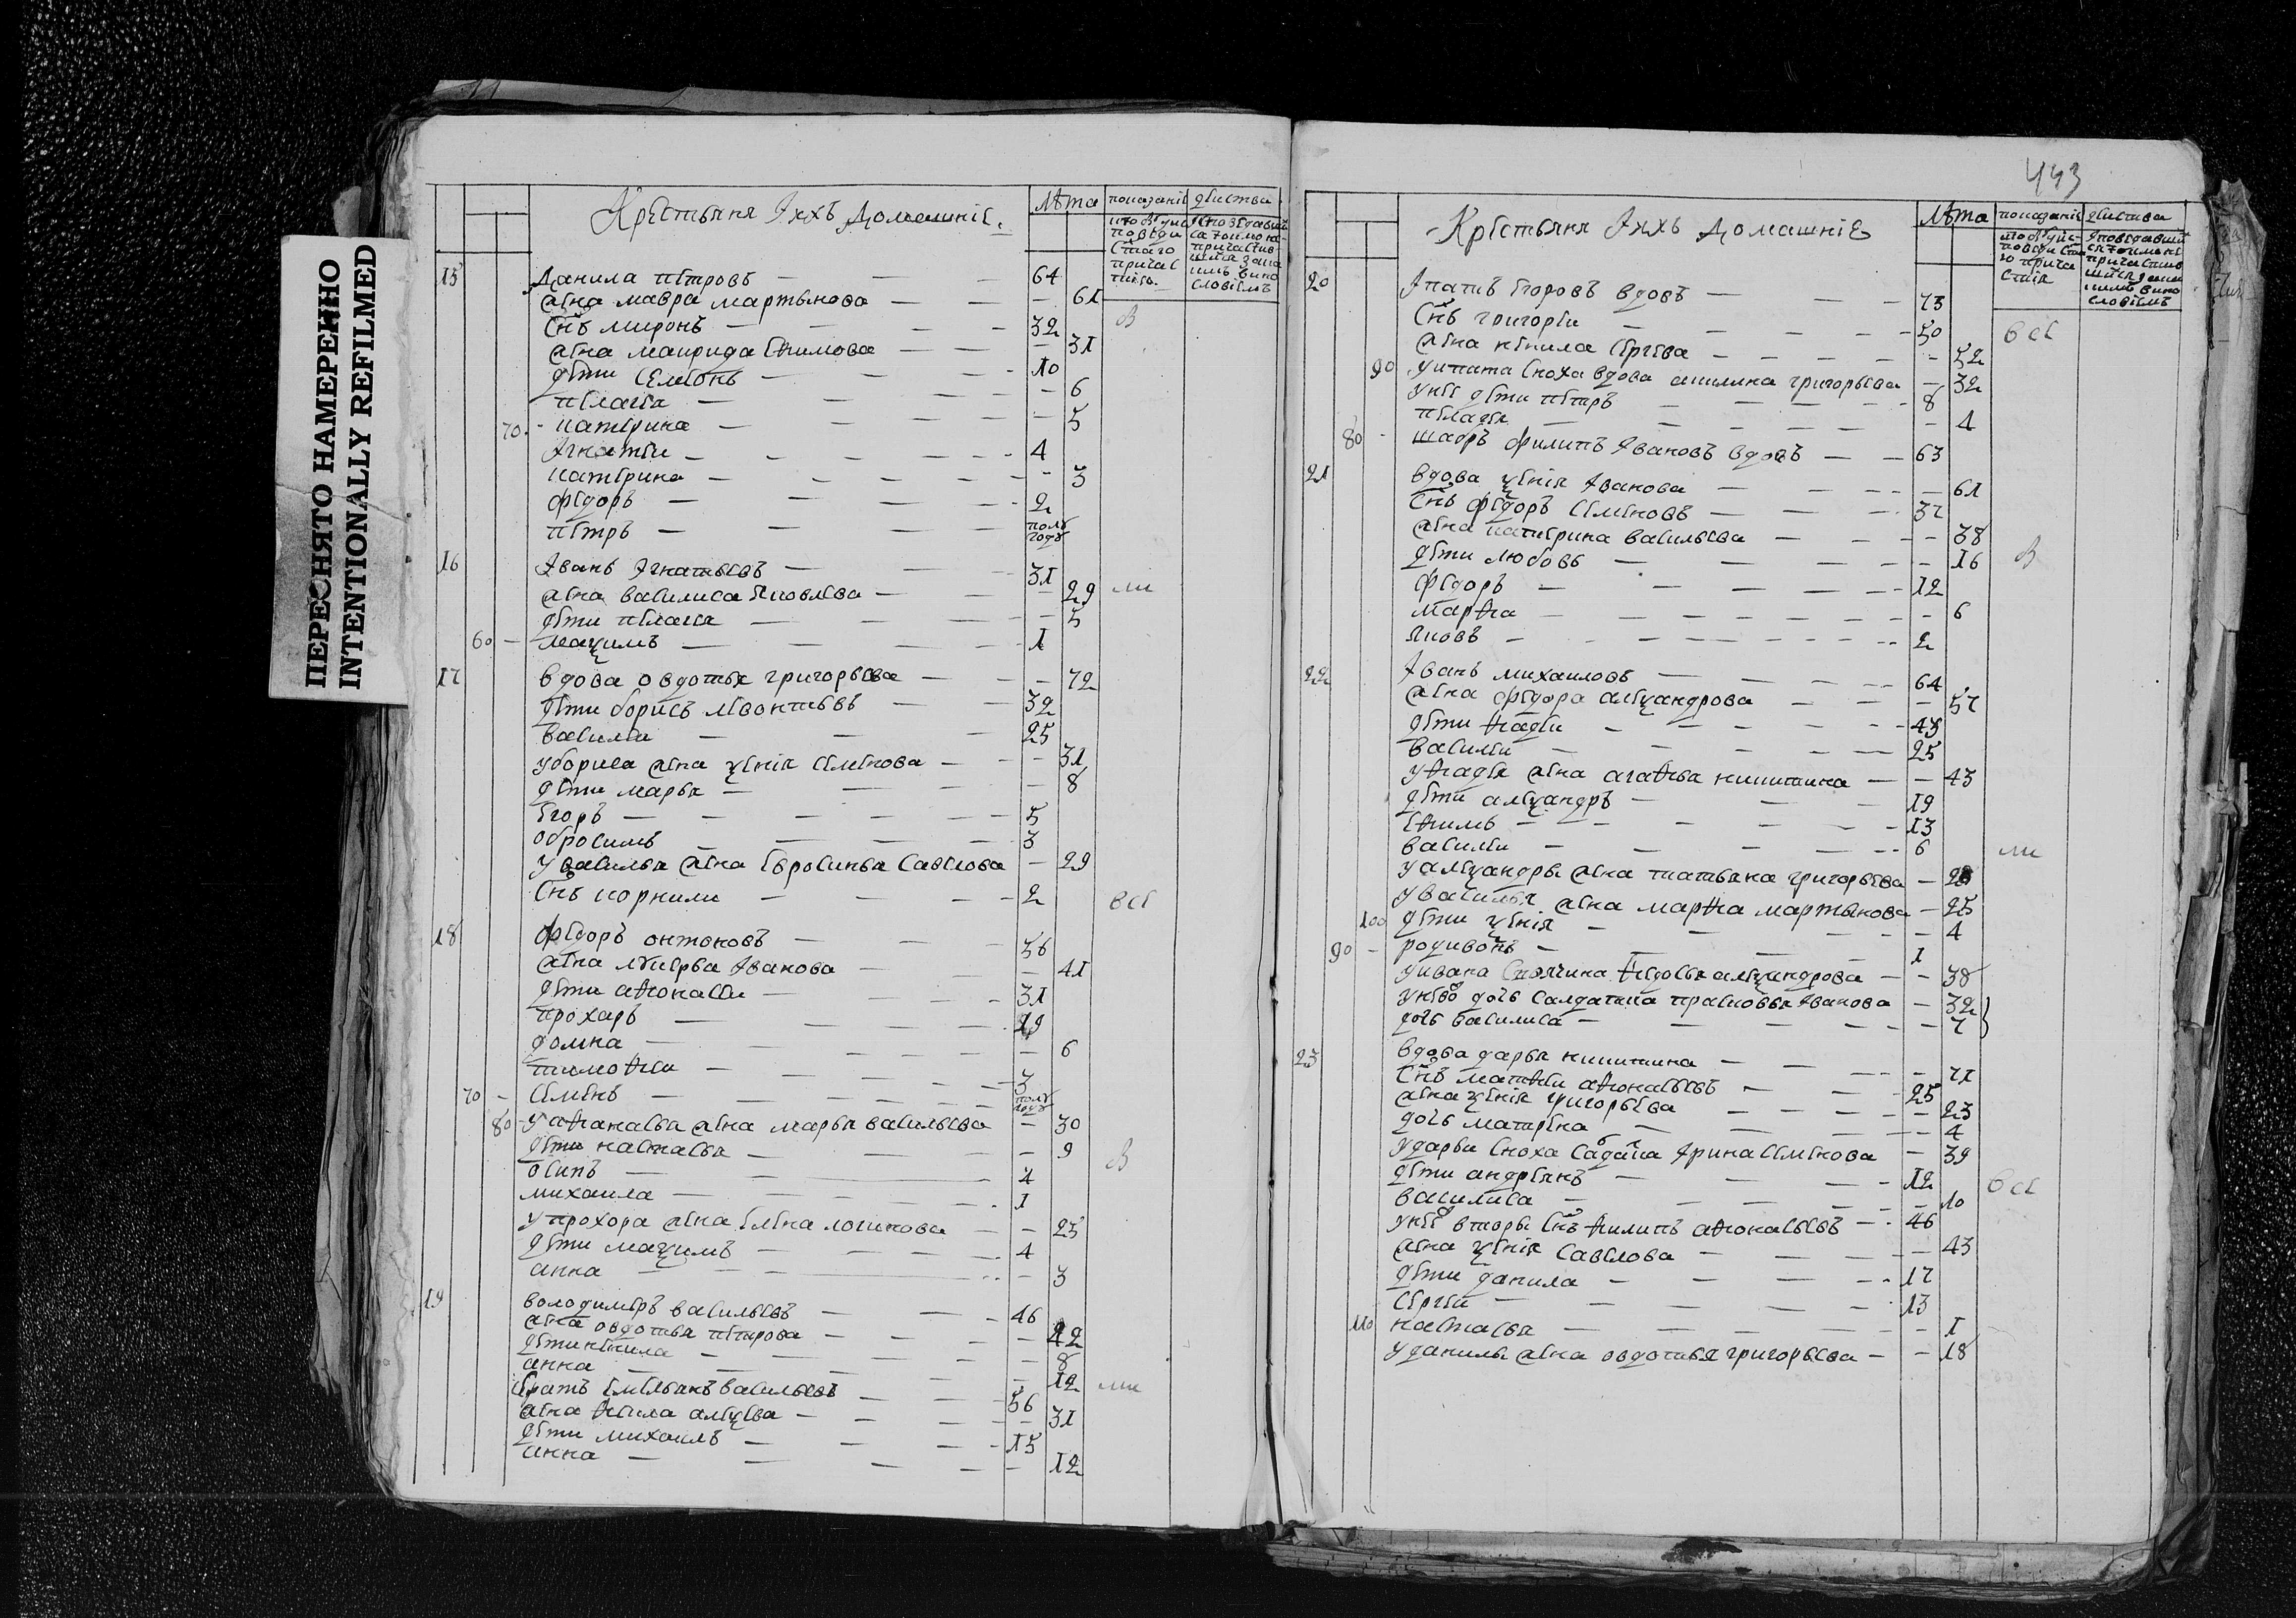 ПЕРЕСНЯТО НАМЕРЕННО
INTENTIONALLY REFILMED
Крестьяня Ихъ домашние.
Лѣта
показаниі
действа
15 Данила петровъ 64
жена мавра мартынова 61
Снъ миронъ 32
жена маврида еѳимова 31
дѣти Семіонъ 10
пелагея 6
70 катерина 5
Игнатеи 4
катерина 3
федоръ 2
петръ полъ году
16 Иванъ Игнатьевъ 31
жена василиса яковлева 29
дѣти пелагея 5
60 маѯимъ 1
17 вдова овдотья григорьева 72
дѣти борисъ левонтьевъ 32
василеи 25
у бориса жена ѯения семенова 31
дѣти марья 8
Егоръ 5
обросимъ 3
у василья жена евросинья савелова 29
Снъ корнили 2
все
18 федоръ онтоновъ 56
жена лукерья Иванова 41
дѣти аѳонасеи 31
прохаръ 19
домна 6
тимоѳеи 3
70 Семенъ полъ году
80 у аѳанасья жена марья васильева 30
дѣти настасья 9
осипъ 4
михаила 1
у прохора жена елена логинова 25
дѣти маѯимъ 4
анна 3
19 володимеръ васильевъ 46
жена овдотья петрова 42
дѣти некила 8
анна 12
братъ емельянъ васильевъ 56
жена ѳекла алеѯева 31
дѣти михаилъ 15
анна 12
443
Крестьяня Ихъ домашние
Лѣта
показаниі
действа
20 Ипатъ Егоровъ вдовъ 73
Снъ григореи 50
все
жена некила сергева 52
90 у ипата сноха вдова акилина григорьева 32
у неи дѣти петръ 8
пеладья 4
80 шавръ филипъ Ивановъ вдовъ 63
21 вдова ѯения Иванова 61
Снъ федоръ семеновъ 37
жена катерина васильева 38
дѣти любовь 16
федоръ 12
марѳа 6
яковъ 2
22 Иванъ михаиловъ 64
жена федора алеѯандрова 57
дѣти ѳадеи 43
василеи 25
у ѳадея жена агаѳья никитина 43
дѣти алеѯандръ 19
еѳимъ 13
василеи 6
у алеѯандры жена татьяна григорьева
у василья жена марѳа мартынова 25
100 дѣти ѯения 4
90 родивонъ 1
у ивана своячина ѳедосья алеѯандрова 38
у нево дочь салдатка прасковья Иванова 32
дочь василиса 7
23 вдова дарья никитина 71
Снъ матвеи аѳонасьевъ 25
жена ѯения григорьева 23
дочь матрена 4
у дарьи сноха садатка Ирина семенова 39
дѣти андреянъ 12
все
василиса 10
у неи вторы снъ ѳилипъ аѳонасьевъ 46
жена ѯения савелова 43
дѣти данила 17
Сергеи 13
110 настасья 1
у данилы жена овдотья григорьева 18